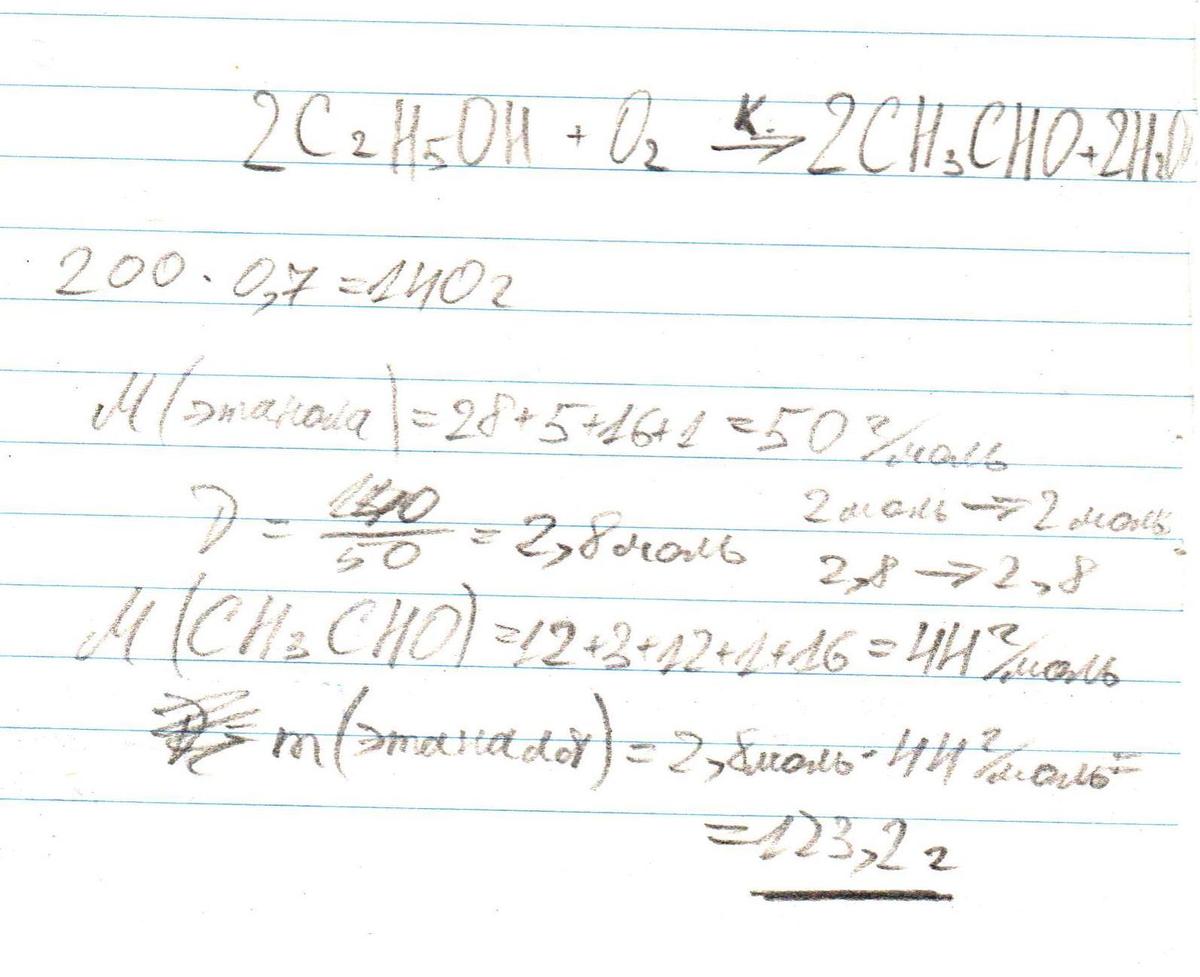 2C₂H₅OH + O₂ →ᴷ· 2CH₃CHO+2H₂O
200 · 0,7 = 140 г
M(этанола) = 28+5+16+1 = 50 г/моль
ν = 140/50 = 2,8 моль
2 моль → 2 моль
2,8 → 2,8
M(CH₃CHO) = 12+3+12+1+16 = 44 г/моль
m(этаналя) = 2,8 моль · 44 г/моль =
= 123,2 г